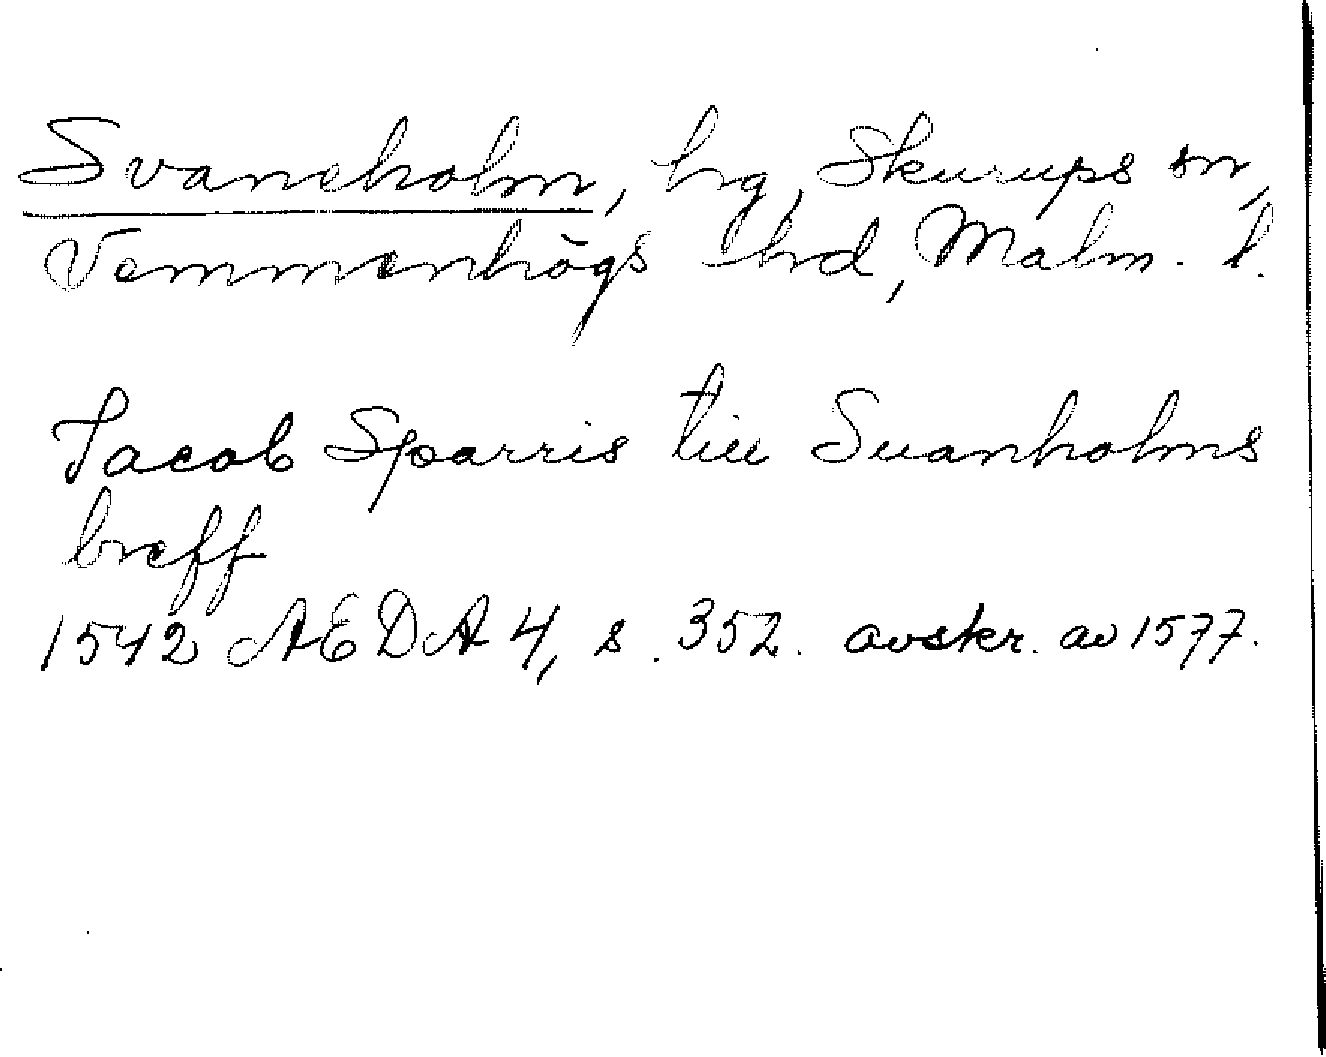 Svaneholm, hg, Skurups sn,
Vemmenhögs hrd, Malm. l.
Jacob Sparris till Suanholms
breff
1542 AEDA 4, s. 352. avskr. av 1577.